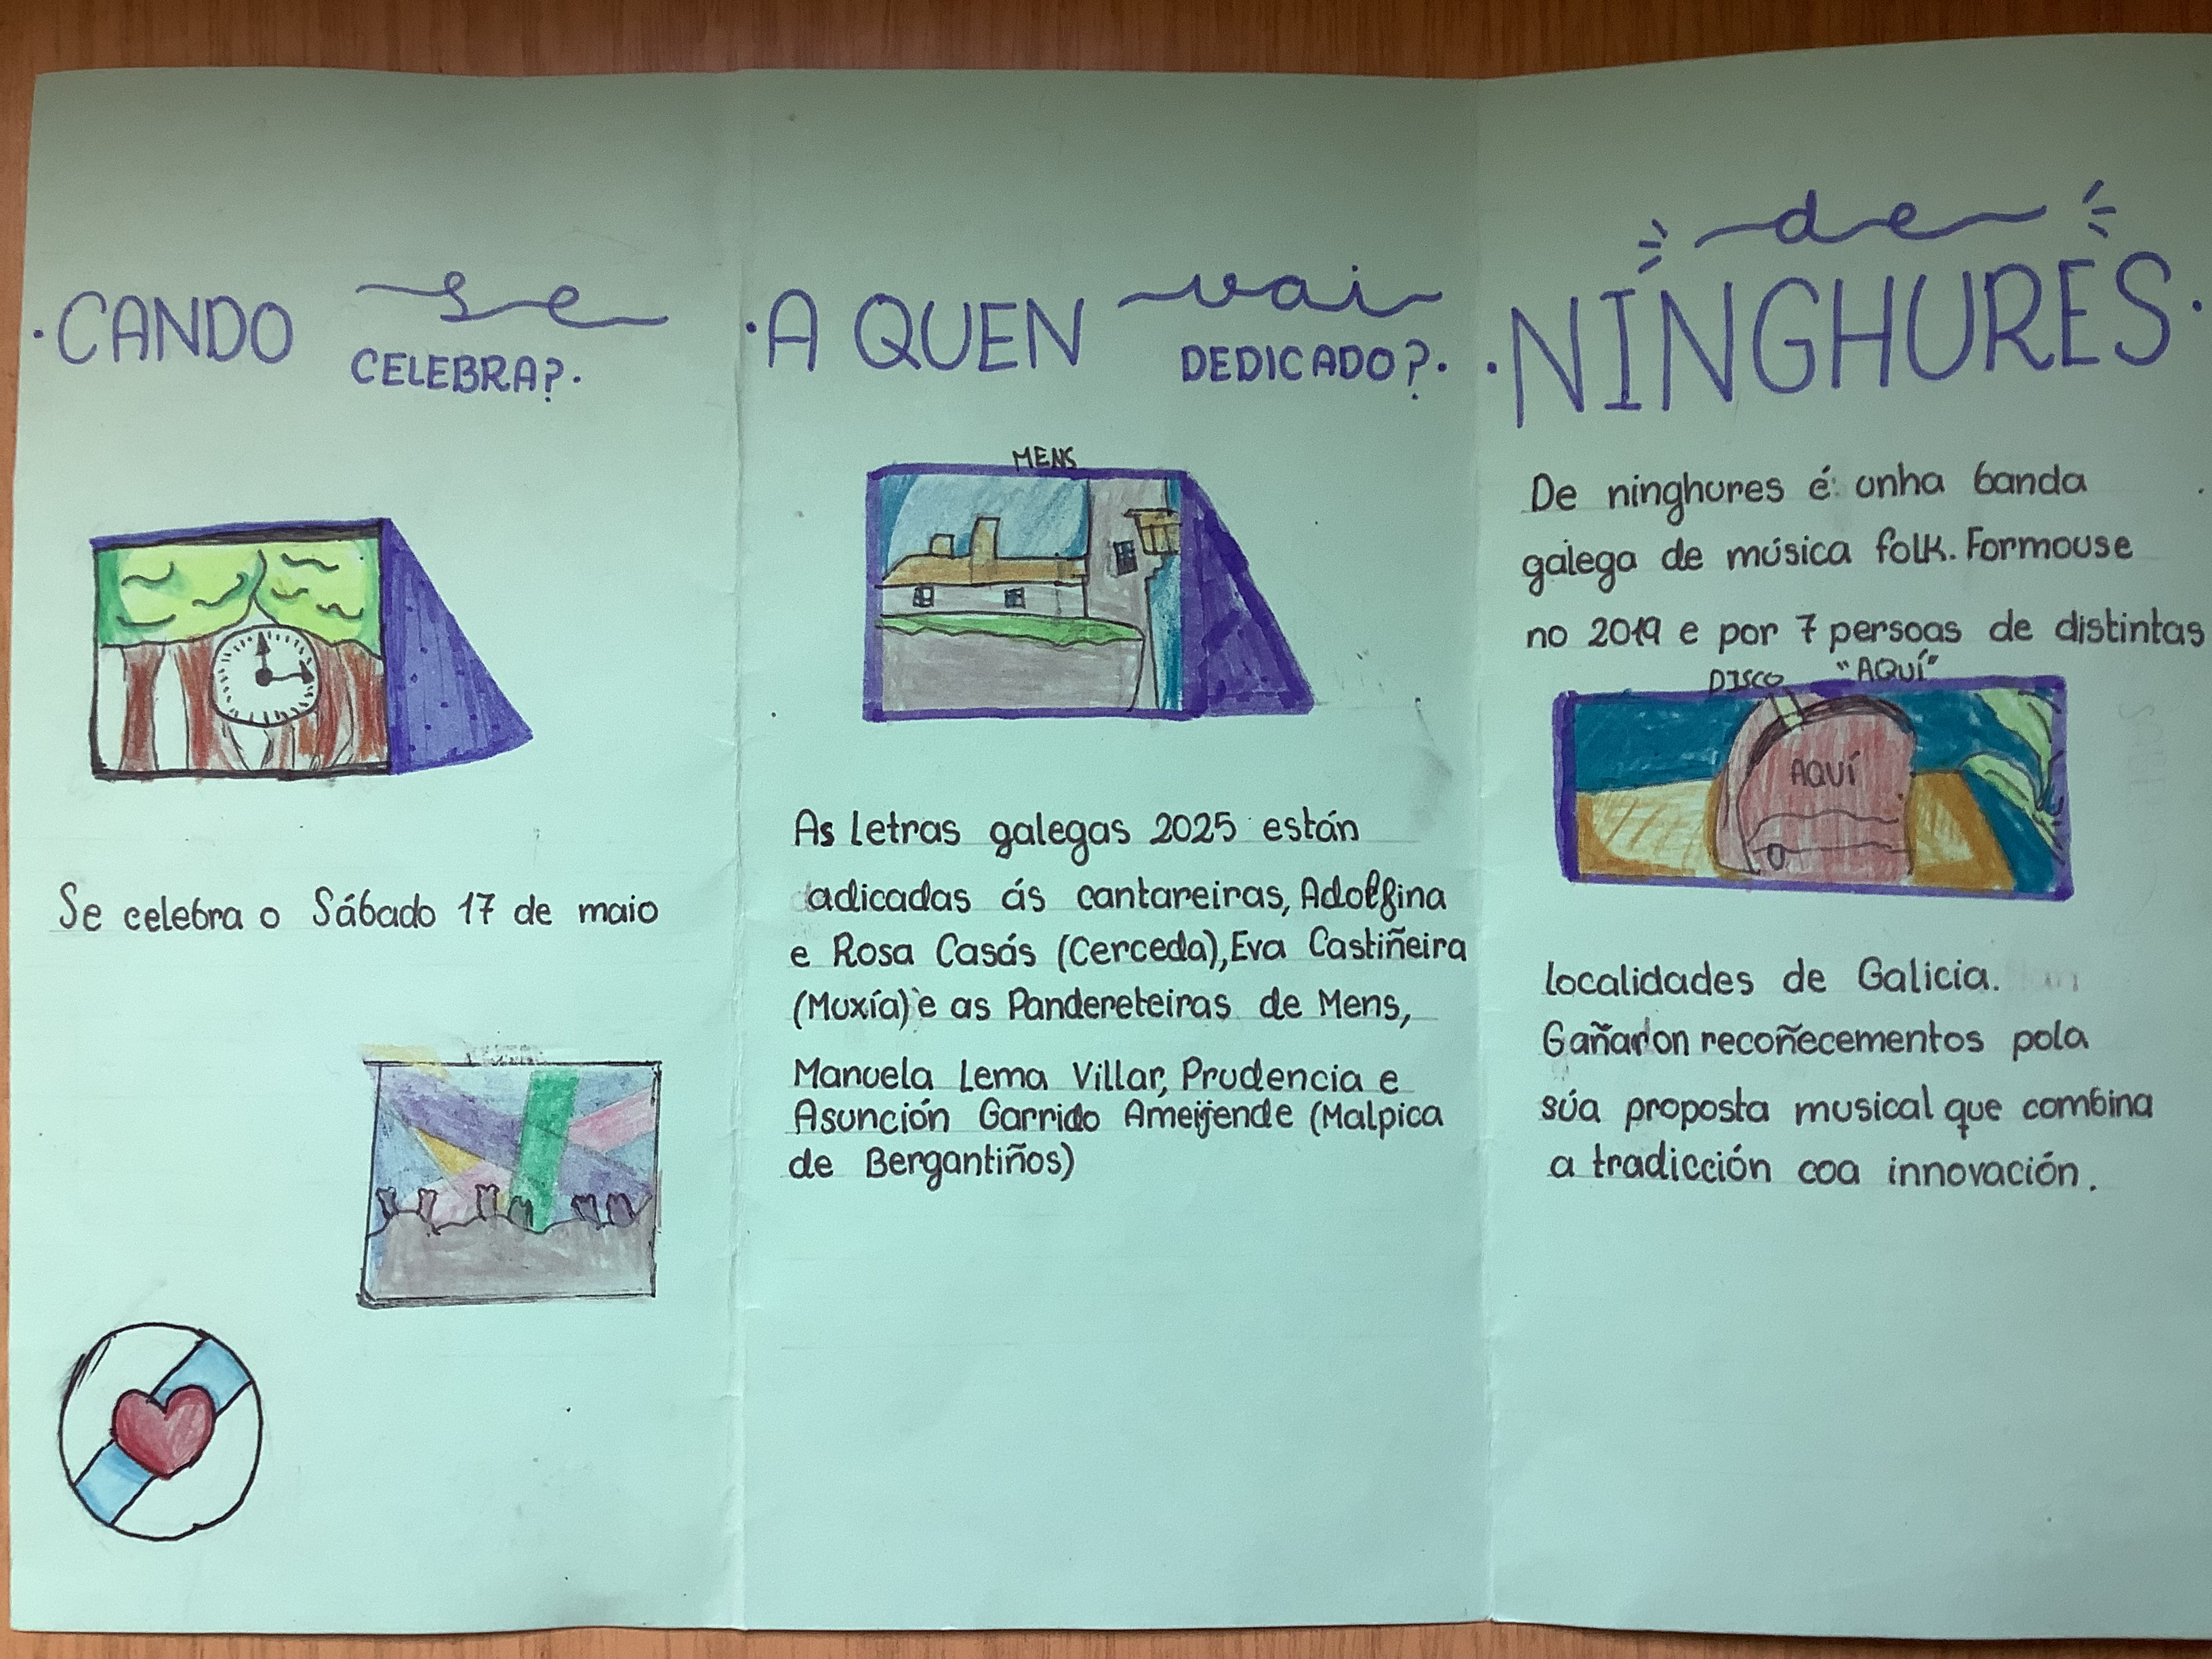 ·CANDO se
CELEBRA?·
Se celebra o Sábado 17 de maio
·A QUEN vai
DEDICADO?·
MENS
As Letras galegas 2025 están
adicadas ás cantareiras, Adolfina
e Rosa Casás (Cerceda), Eva Castiñeira
(Muxía) e as Pandereteiras de Mens,
Manuela Lema Villar, Prudencia e
Asunción Garrido Ameijende (Malpica
de Bergantiños)
de
·NINGHURES·
De ninghures é unha banda
galega de música folk. Formouse
no 2019 e por 7 persoas de distintas
DISCO "AQUÍ"
AQUÍ
localidades de Galicia.
Gañaron recoñecementos pola
súa proposta musical que combina
a tradicción coa innovación.